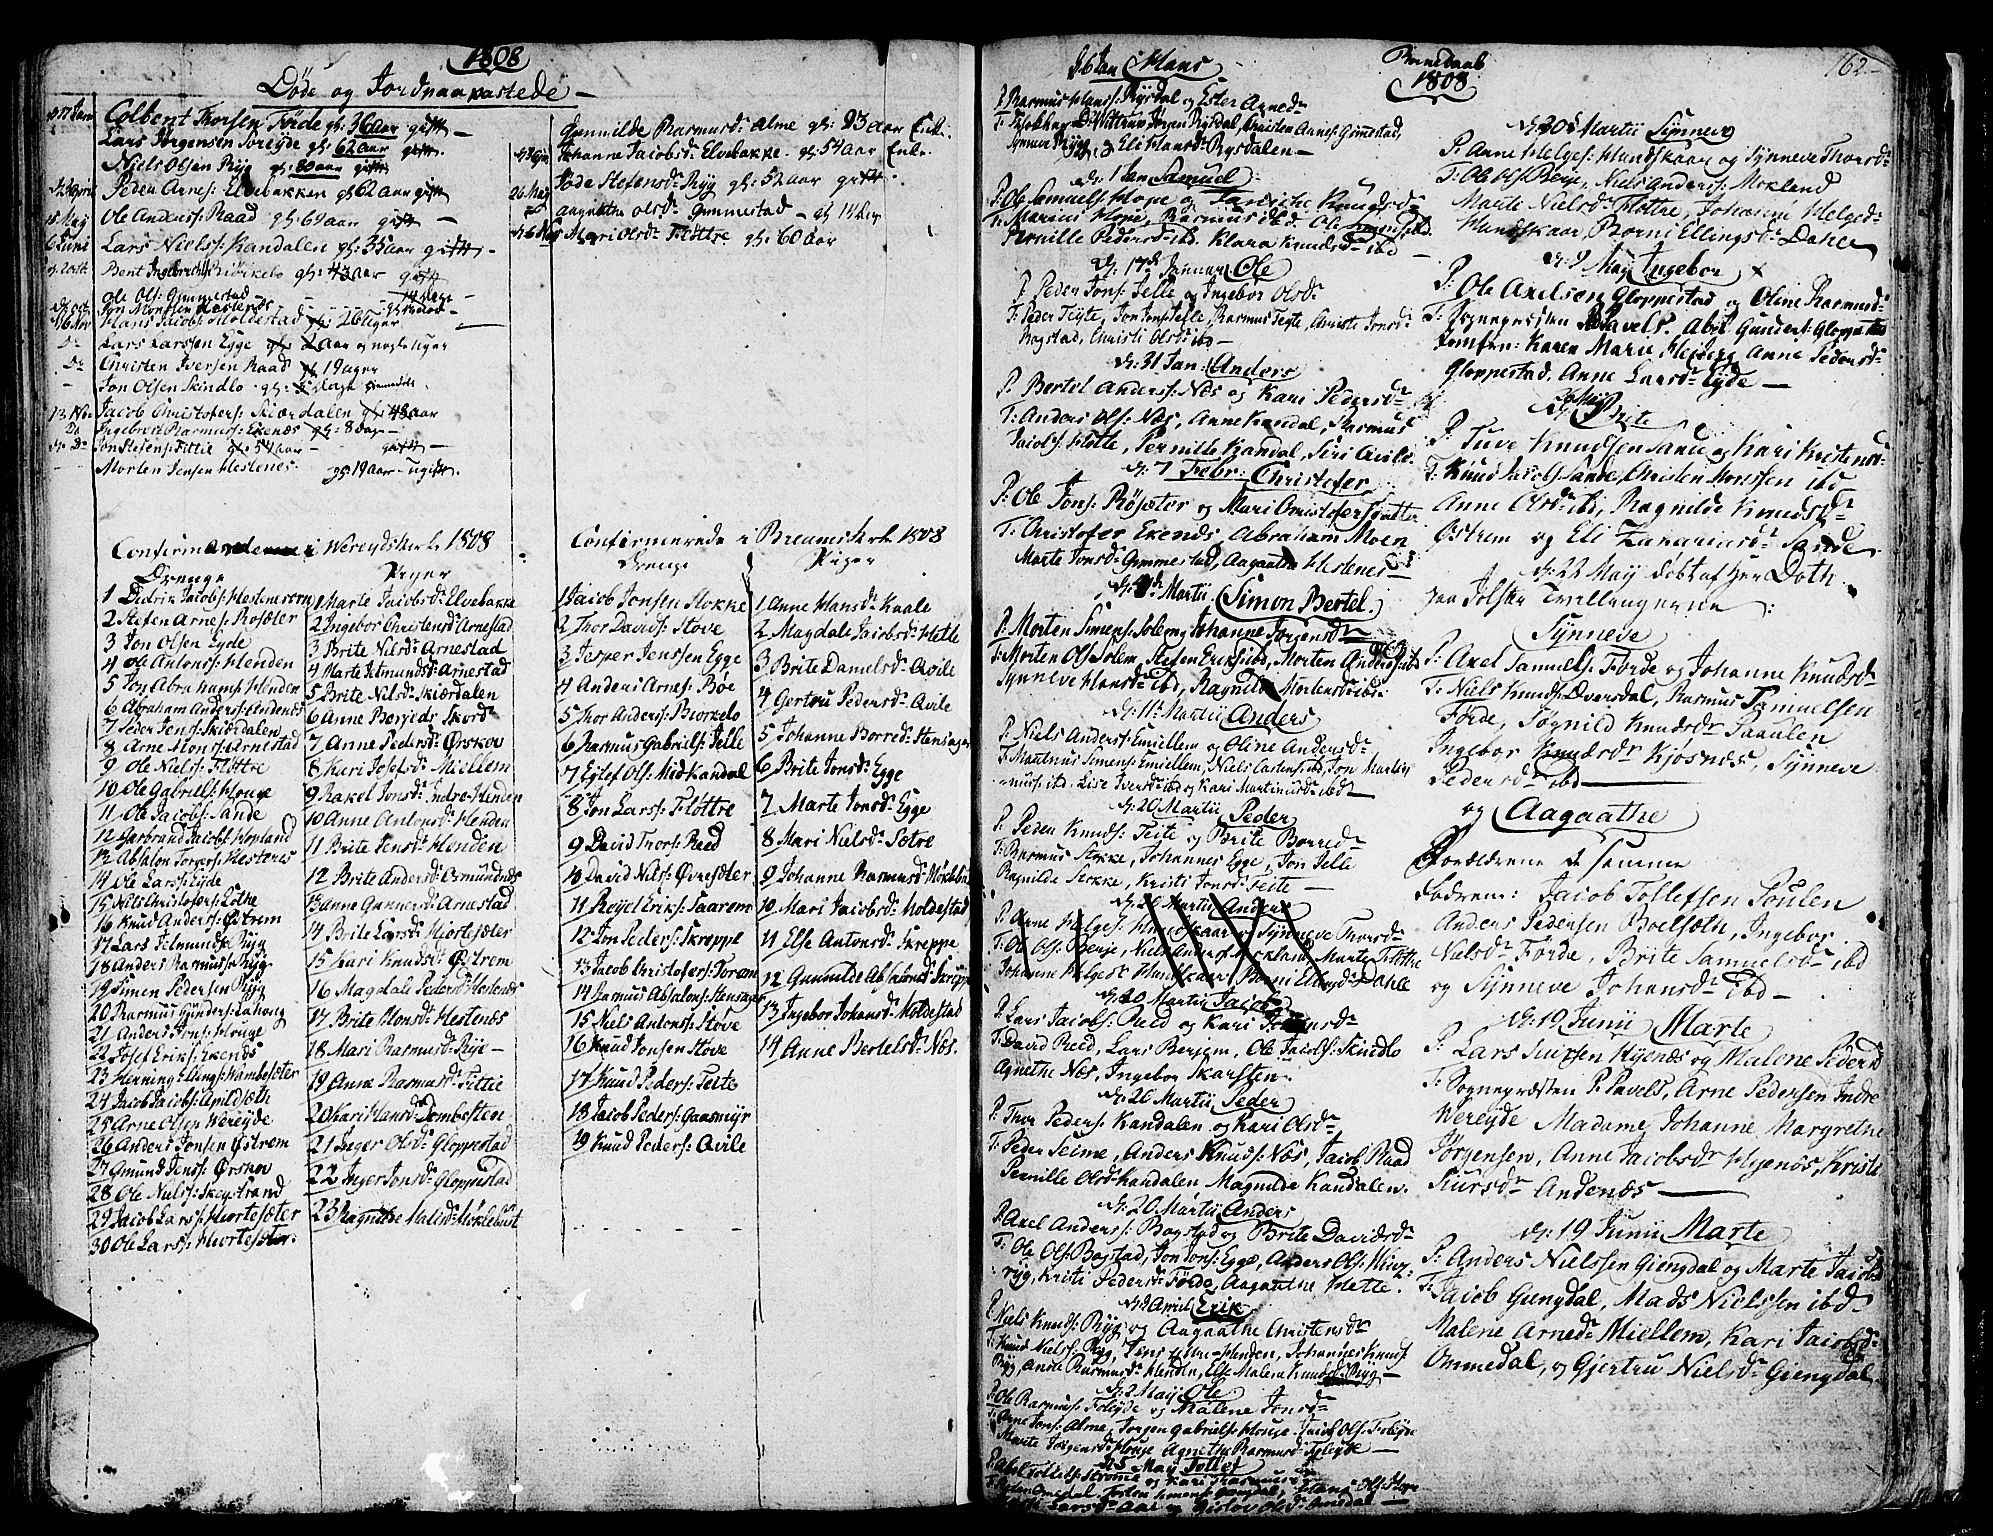 1808
Døde og Jordpaakastede
17 Janr Colbent Thorsen Førde gl: 36 aar gift
Lars Jørgensen Foreyde gl: 62 aar gift
Niels Olsen Ryg gl: 80 aar gift
Peder Arnes: Elvebakken gl: 62 aar gift
Ole Anders: Raad gl: 69 aar gift
6 Juni Lars Niels: Kandalen gl: 35 aar gift
Bent Ingebrigts: Biørkelo gl: 43 aar gift
Ole Ols: Gimmestad
Jon Monsen Hestenes
Hans Jacobs: Moldestad gl: 26 Uger
Do Lars Larssen Egge gl: 2 aar og nogle uger
Do Christen Iversen Raad gl 19 uger
Jon Olsen Skindlo gl: 5 dage
13 No Jacob Christofers: Skiærdalen gl: 43 aar
Do Ingebret Rasmus: Ekenæs gl: 8 dag
Jon Stefens: Fittie gl: 54 aar gift
Morten Jensen Hestenes gl: 19 aar ugift.
Gunnilde Rasmusdr Alme gl: 83 aar Enke.
Johanne Jacobsdr Elvebakke gl: 54 aar Enke
26 May Jøde Stefensdr Ryg gl: 52 aar gift
Aagaathe Olsdr Gimmestad
Mari Olsdr Fløttre gl: 60 aar
Confirmanderne i Wereydskirke 1808
Drenge
1 Didrik Jacobs: Hestenesøren
2 Stefen Arnes: Rosæter
3 Jon Olsen Eyde
4 Ole Antons: Henden
5 Jon Abrahams: Henden
6 Abraham Anders: Hendenes
7 Peder Jens: Skiærdalen
8 Arne Mons: Arnestad
9 Ole Niels: Fløttre
10 Ole Gabriels: Houge
11 Ole Jacobs: Sande
12 Garbrand Jacobs: Hopland
13 Absalon Torgers: Hestenes
14 Ole Lars: Eyde
15 Niels Christofers: Lothe
16 Knud Anders: Østrem
17 Lars Jetmunds: Ryg
18 Anders Rasmus: Ryg
19 Simen Pedersen Ryg
20 Rasmus Gunders: Lahoug
21 Anders Jons: Houge
22 Josef Eriks: Ekenæs
23 Henning Ellings: Hambesæter
24 Jacob Jacobs: Apildsæth
25 Arne Olsen Wereyde
26 Anders Jonsen Østrem
27 Gmund Jens: Ørskov
28 Ole Niels: Skeystrand
29 Jacob Lars: Hiortesæter
30 Ole Lars: Hiortesæter.
Piger
1 Marte Jacobsdr Elvebakke
2 Ingebor Christensdr Arnestad
3 Brite Nilsdr Arnestad
4 Marte Jetmundsdr Arnestad
5 Brite Nilsdr Skiærdalen
6 Anne Bergedr Skordr
7 Anne Pedersdr Ørskov
8 Kari Josefsdr Miellem
9 Rakel Jonsdr Indre Henden
10 Anne Antonsdr Henden
11 Brite Jensdr Henden
12 Brite Andersdr Osmundnes
13 Anne Gunnersdr Arnestad
14 Brite Larsdr Hiortesæter
15 Kari Knudsdr Østrem
16 Magdale Pedersdr Hestenes
17 Brite Monsdr Hestenæs
18 Mari Rasmusdr Rye
19 Anne Rasmusdr Fittie
20 Kari Hansdr Dombesten
21 Inger Olsdr Gloppestad
22 Inger Jonsdr Gloppestad
23 Ragnilde Matisdr Møklebust
Confirmerede i Breums kirke 1808
Drenge
1 Jacob Jonsen Stokke
2 Thor Davids: Støve
3 Jesper Jenssen Egge
4 Anders Arnes: Bøe
5 Thor Anders: Biørkelo
6 Rasmus Gabriels: Felle
7 Eylef Ols: Midkandal
8 Jon Lars: Fløttre
9 David Thors: Raed
10 David Nils: Øvresæter
11 Reyel Eriks: Saarem
12 Jon Peders: Skreppe
13 Jacob Christofers: Forem
14 Rasmus Absalons: Hensager
15 Niels Antons: Støve
16 Knud Jonsen Støve
17 Knud Peders: Feite
18 Jacob Peders: Gaasmyr
19 Knud Peders: Avile
Piger
1 Anne Hansdr Kaale
2 Magdale Jacobsdr Hetle
3 Brite Danielsdr Avile
4 Gertru Pedersdr Avile
5 Johanne Borredr Hansager
6 Brite Jonsdr Egge
7 Marte Jonsdr Egge
8 Mari Nielsdr Sætre
9 Johanne Rasmusdr Møkleb
10 Mari Jacobsdr Moldestad
11 Else Antonsdr Skreppe
12 Gunnilde Absalonsdr Skreppe
13 Ingebor Johansdr Moldestad
14 Anne Bertelsdr Næs.
Barnedaab
1808
162
d. 6 Jan Hans
P. Rasmus Hans: Rysdal og Ester Arnedr
Synneve Ryg og Eli Hansdr Rysdalen
d. 1 Jan Samuel
P: Ole Samuels: Hope og Knudsdr
T: Marius Hope, Rasmus ibd. Ole ibd.
Pernille Pedersdr ibd. Klara Knudsdr ibd
d. 17de Januar Ole
P Peder Jons: Felle og Ingebor Olsdr
T: Peder Feyte, Jon Jons: Felle, Rasmus Feyte, Anniste Jonsdr
Rogstad, Christi Olsdr ibd
d. 31 Jan: Anders
P: Bertel Anders: Næs og Kari Pedersdr
T: Anders Ols: Næs, Anne Kandal, Rasmus
Jacobs: Hette, Pernille Kandal, Siri Avile.
d. 7 Febr: Christofer
P: Ole Jons: Røsæter og Mari Christofersdatter
T: Christofer Ekenæs, Abraham Moen
Marte Jonsdr Gimmestad, Aagaathe Hestenes
Martii Simon Bertel.
P: Morten Simens: Solem og Johanne Jørgensdr
T: Morten Ols: Solem, Stefen Eriks: ibd, Morten Anders: ibd
Synneve Hansdr ibd, Ragnilde Mortensdr ibd.
d. 11te Martii Anders
P. Niels Anders: Emiellem og Oline Andersdr
T: Martinus Simens: Emiellem, Niels Carstens: ibd, Jon Martin
mus: ibd. Lise Iversdr ibd og Kari Martinusdr ibd
d: 20 Martii Peder
P: Peder Knuds: Feite og Brite Borredr
T: Rasmus Stokke, Johannes Egge, Jon Felle
Ragnilde Stokke, Kristi Jonsdr Feite
d. 20 Martii Anders
P. Arne Helges: Hundskaar og Synneve Thorsdr
T: Ole Ols: Berje, Niels Anders: Mockland, Marte Fløttre
Johanne Helgedr Hundskaar, Barni Ellingsdr Dahle
d. 20 Martii Jacob
P. Lars Jacobs: Reed og Kari Jonsdr
T: David Reed, Lars Berjem, Ole Jacobs: Skindlo
Agnethe Næs, Ingebor Skarsten.
d: 26 Martii Peder
P. Thor Peders: Kandalen og Kari Olsdr
T: Peder Seime, Anders Knuds: Næs, Jacob Raad
Pernille Olsdr Kandalen, Magnilde Kandalen.
d: 20 Martii Anders
P. Axel Anders: Bogstad og Brite Davidsdr
T: Ole Ols: Bogstad, Jon Jons: Egge, Anders Ols:
ryg, Kristi Pedersdr Førde, Aagaathe Hette.
April Erik
P. Niels Knuds: Ryg og Aagaathe Christensdr
T: Knud Niels: Ryg, Jens Henden, Johannes Knuds:
Ryg, Anne Rasmusdr Henden, Else Malena Knudsdr Ryg
d: 2 May Ole
P. Ole Rasmus: Foleyde og Malene Jonsdr
T: Arne Jons: Alme, Jørgen Gabriels: Houge, Jacob Ols: Foleyde
Marte Jørgensdr Houge, Agnethe Rasmusdr Foleyde
d 5 May Tollef
Larsdr Aae og Olsdr Omedal
d. 30 Martii Synneve
P. Arne Helges: Hundskaar og Synneve Thorsdr
T: Ole Ols: Berje, Niels Anders: Mokland
Marte Nielsdr Fløttre, Johanne Helgedr
Hundskaar, Barni Ellingsdr Dahle
d. 9 May Ingebor
P. Ole Axelsen Gloppestad og Oline Rasmusdr
T. Sognepresten P. Pavels. Abel Gunders: Gloppestad
Jomfru: Karen Marie Heiberg Anne Pedersdr
Gloppestad. Anne Larsdr Eyde
Brite
P. Tuve Knudsen Sande og Kari Kristensdr
T. Knud Jacobs: Sande, Christen Monssen ibd
Anne Olsdr ibd, Ragnilde Knudsdr
Østrem og Eli Zakariasdr Sande
d. 22 May døbt af Herr Doth
paa Jolster Tvillingerne
Synneve
P. Axel Samuels: Førde og Johanne Knudsdr
T. Niels Knuds: Dversdal, Rasmus Samuelsen
Førde, Søgnild Knudsdr Paaulen
Ingebor Knudsdr Kjøsnæs, Synneve
Pedersdr ibd
og Aagaathe
Forældrene de samme
Fadrene: Jacob Tollefsen Poulen
Anders Pedersen Boelsæth, Ingebor
Nielsdr Førde, Brite Samuelsdr ibd
og Synneve Johansdr ibd
d. 19 Junii Marte
P. Lars Hyenæs og Malene Pedersd
T. Sognepresten P. Pavels, Arne Pedersen Indre
Wereyde Madame Johanne Margrethe
Jørgensen, Anne Jacobsdr Hyenæs, Kristi
Siursdr Andenæs
d. 19 Junii Marte
P. Anders Nielssen Giengdal og Marte Jacobs
T. Jacob Giengdal, Mads Nielssen ibd
Malene Arnedr Miellem, Kari Jacobsdr
Ommedal, og Gjertru Nielsdr Giengdal.